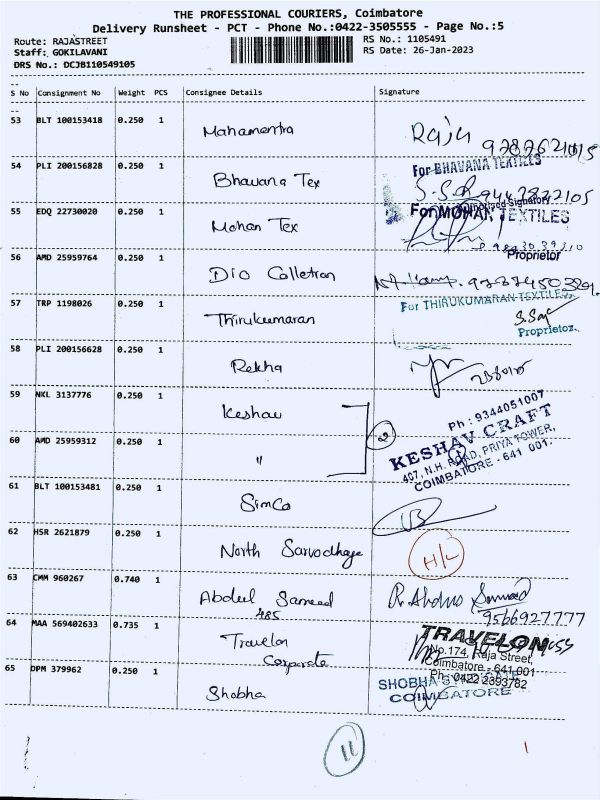 THE PROFESSIONAL COURIERS, Coimbatore
Delivery Runsheet - PCT - Phone No.:0422-3505555 - Page No.:5
Route: RAJASTREET
RS No.: 1105491
Staff: GOKILAVANI
RS Date: 26-Jan-2023
DRS No.: DCJB110549105
S No Consignment No Weight PCS Consignee Details Signature
53 BLT 100153418 0.250 1 Mahamantra Raju
54 PLI 200156828 0.250 1 Bhavana Tex For BHAVANA TEXTILES
Authorised Signatory
55 EDQ 22730020 0.250 1 Mohan Tex For MOHAN TEXTILES
Proprietor
56 AMD 25959764 0.250 1 Dio Colletron
57 TRP 1198026 0.250 1 Thirukumaran For THIRUKUMARAN TEXTILES
Proprietor.
58 PLI 200156628 0.250 1 Rekha
59 NKL 3137776 0.250 1 Keshav 2
Ph : 9344051007
KESHAV CRAFT
407, N.H. ROAD, PRIYA TOWER,
COIMBATORE - 641 001.
60 AMD 25959312 0.250 1 "
61 BLT 100153481 0.250 1 Simco
62 HSR 2621879 0.250 1 North Sarvodhaya H/L
63 CMM 960267 0.740 1 Abdul Samead
485
R. Abdus Samad
9566927777
64 MAA 569402633 0.735 1 Travelon
Corporate
TRAVELON
No.174, Raja Street,
Coimbatore - 641 001
Ph : 0422 2393782
65 DPM 379962 0.250 1 Shobha SHOBHA
COIMBATORE
11
1